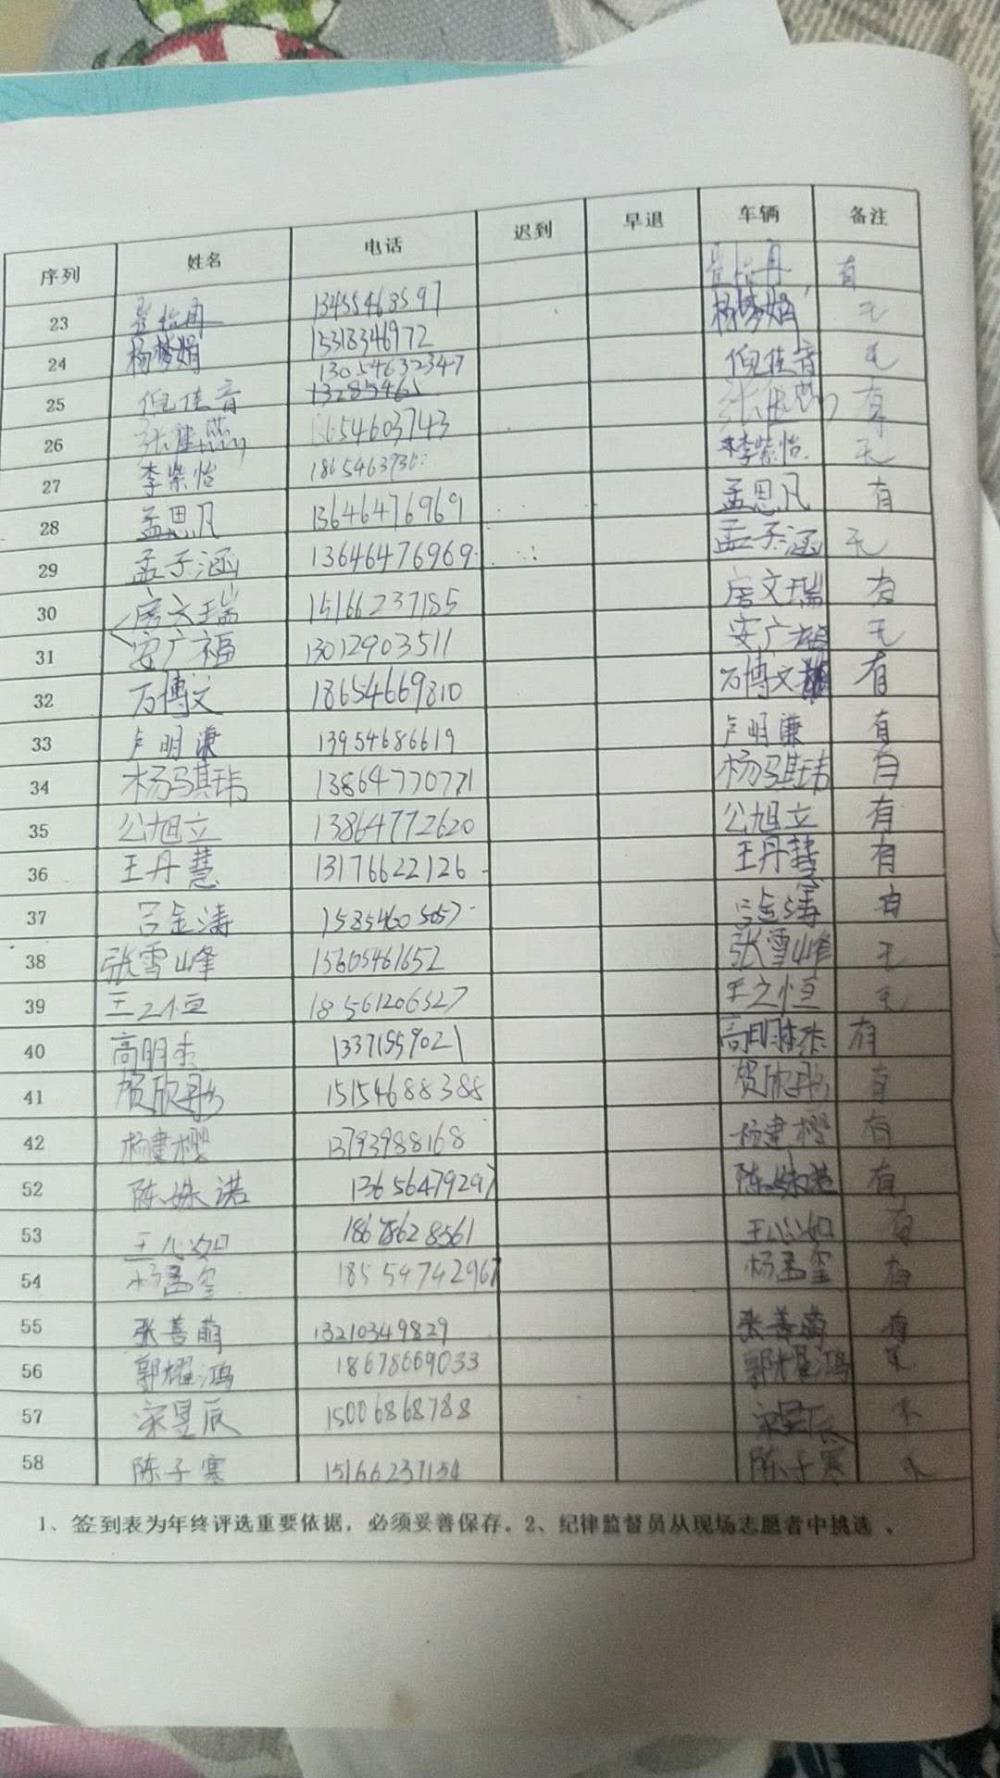 序列 姓名 电话 迟到 早退 车辆 备注
23 13455463597 有
24 杨梦娟 15318346972 杨梦娟 无
25 倪佳音 13054632347 倪佳音 无
26 有
27 李紫怡 李紫怡 无
28 孟思凡 13646476969 孟思凡 有
29 孟子涵 13646476969 孟子涵 无
30 房文瑞 15166237185 房文瑞 有
31 安广福 13012903511 安广福 无
32 万博文 18654669810 万博文 有
33 卢明谦 13954686619 卢明谦 有
34 杨马骐玮 13864770771 杨马骐玮 有
35 公旭立 13864772620 公旭立 有
36 王丹慧 13176622126 王丹慧 有
37 吕金涛 15854605057 吕金涛 有
38 张雪峰 15605461652 张雪峰 无
39 王之恒 18561206527 王之恒 无
40 高明杰 13371559021 高明杰 有
41 贺欣彤 15154688388 贺欣彤 有
42 杨建樱 13793988168 杨建樱 有
52 陈姝诺 13656479297 陈姝诺 有
53 王心如 18678628561 王心如 有
54 杨孟玺 18554742967 杨孟玺 有
55 张善萌 13210349829 张善萌 有
56 郭耀鸿 18678669033 郭耀鸿 无
57 宋昱辰 15006868788 宋昱辰
58 陈子寒 15166237154 陈子寒
1、签到表为年终评选重要依据，必须妥善保存。2、纪律监督员从现场志愿者中挑选 。